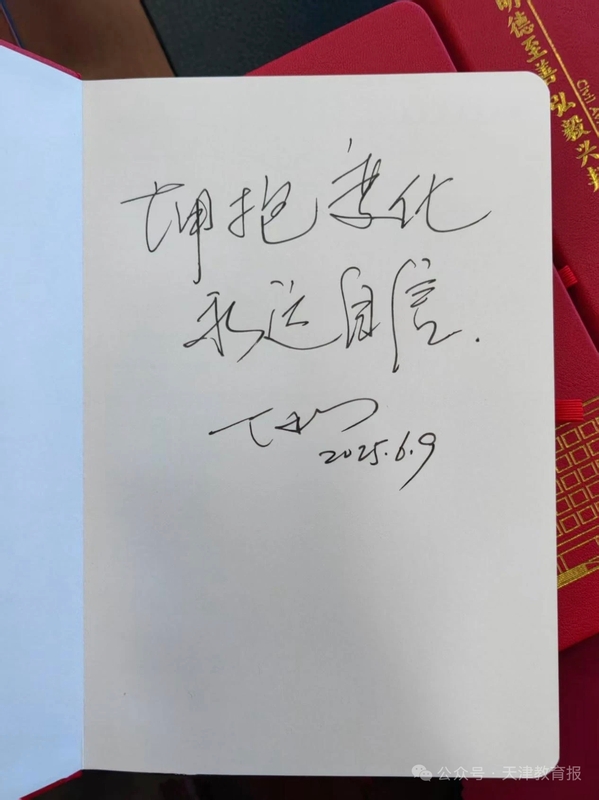 拥抱变化
永远自信.
2025.6.9
明德至善 弘毅兴
公众号·天津教育报